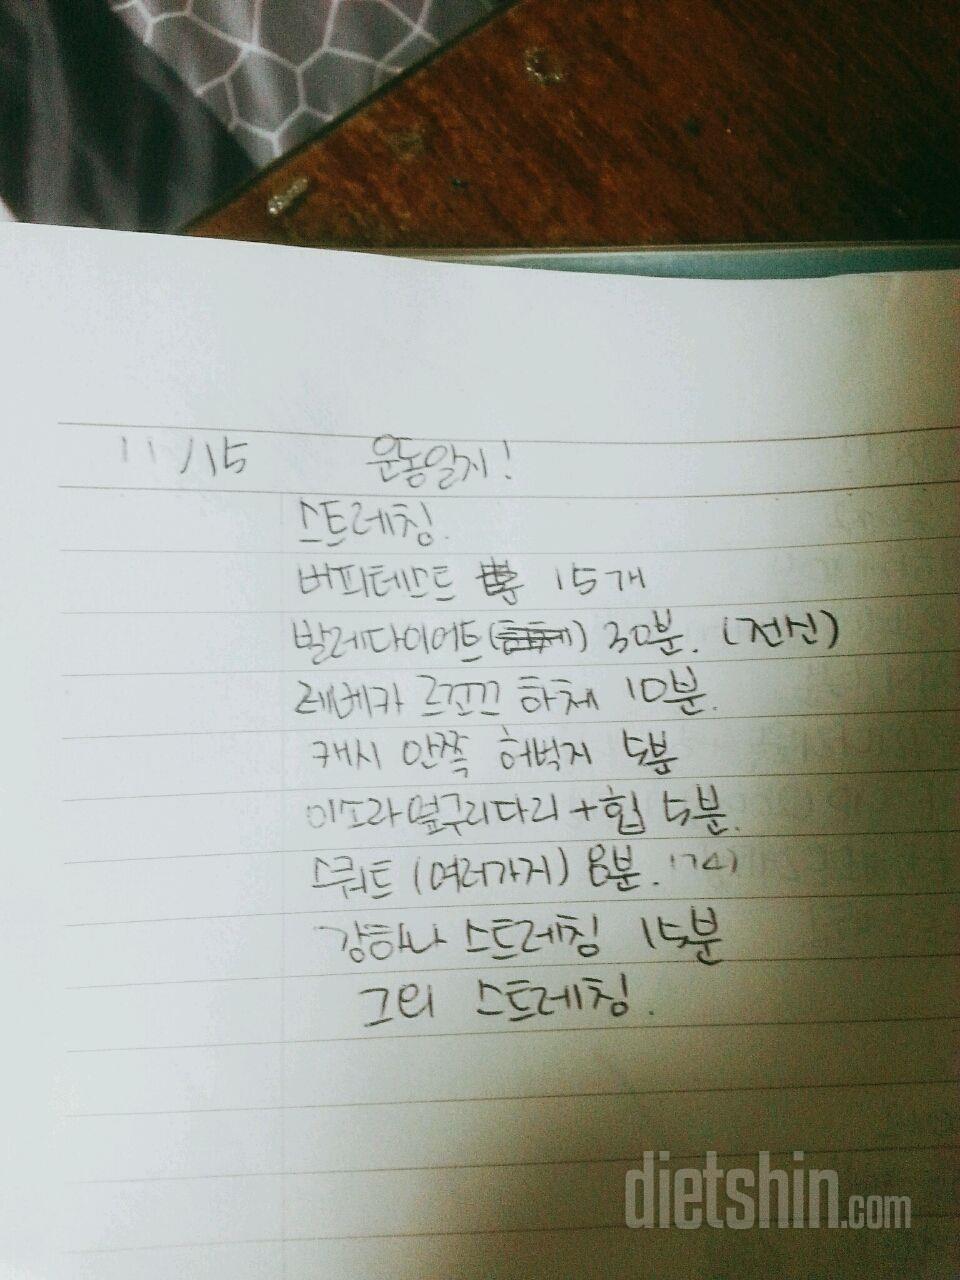 11/15 운동일지!
스트레칭.
버피테스트 15개
발레다이어트( ) 30분. (전신)
레베카 르꼬끄 하체 10분.
캐시 안쪽 허벅지 5분
이소라 옆구리다리+힙 5분.
스쿼트 (여러가지) 8분.
강하나 스트레칭 15분
그외 스트레칭.
dietshin.com